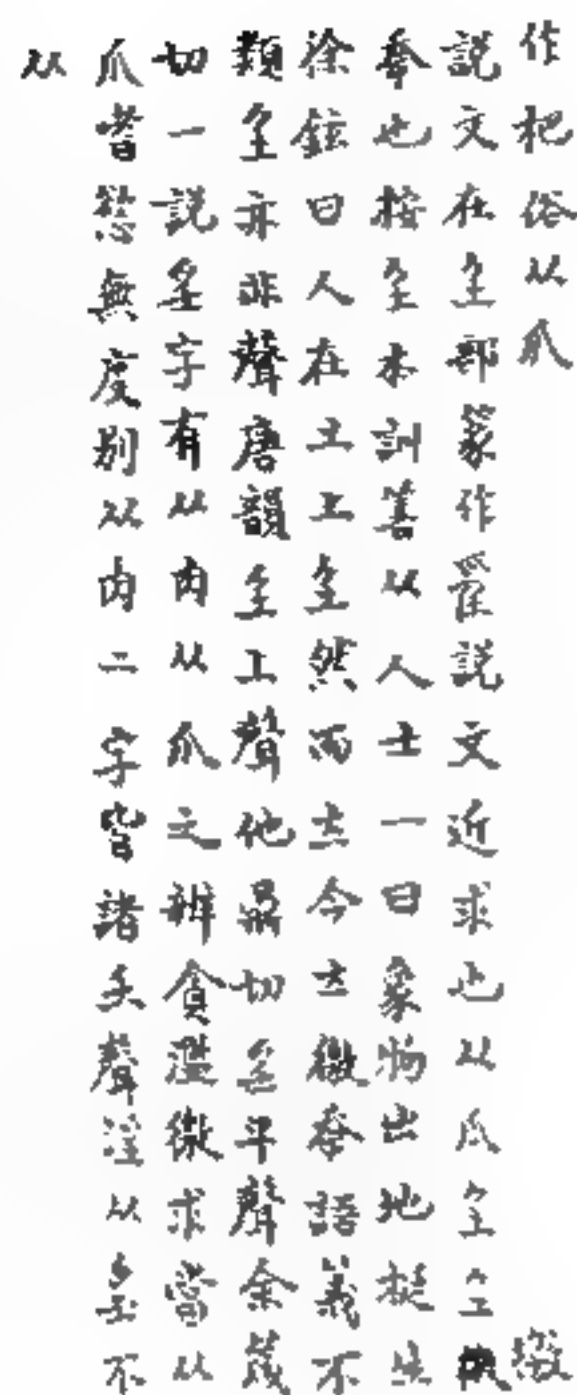 作杷俗从爪
說文在𡈼部篆作𡈼說文近求也从爪𡈼𡈼徼
幸也按𡈼本訓善从人士一曰象物出地挺生
徐鉉曰人在土上𡈼然而立今立徼幸語義不
類𡈼亦非聲唐韻𡈼上聲他鼎切㸒平聲余箴
切一說㸒字有从肉从爪之辨貪濫徼求當从
爪嗜慾無度別从肉二字皆諧壬聲淫从㸒不
从